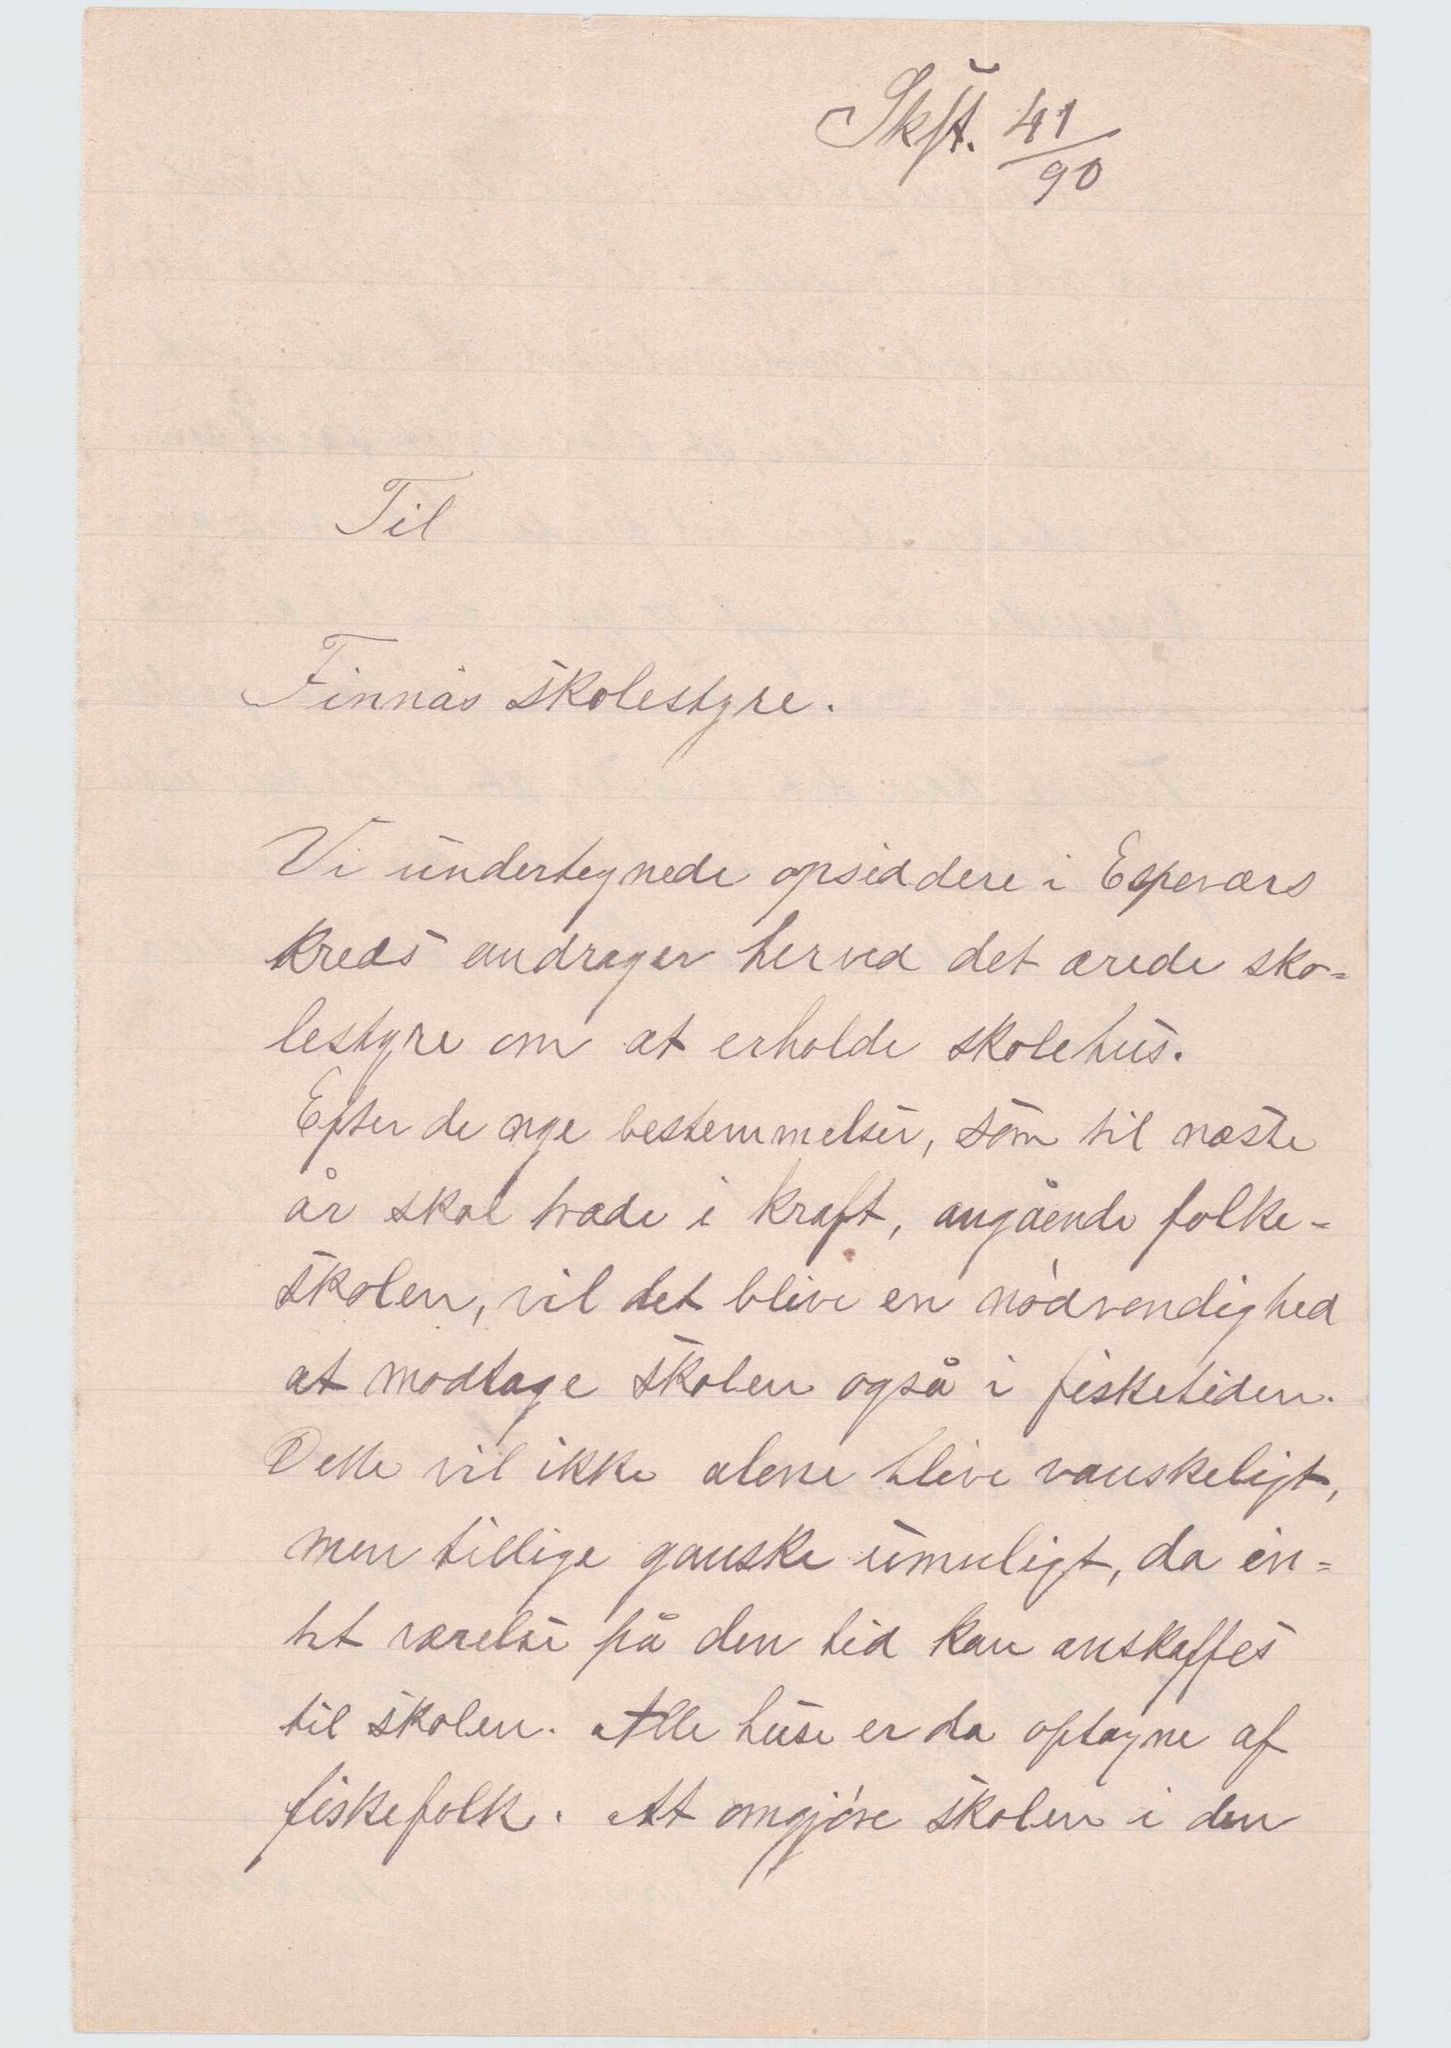 Skst. 41/90
Til
Finnås skolestyre.
Vi undertegnede opsiddere i Espeværs
kreds andrager herved det ærede sko=
lestyre om at erholde skolehus.
Efter de nye bestemmelser, som til næste
år skal træde i kraft, angående folke-
skolen, vil det blive en nödvendighed
at modtage skolen også i fisketiden.
Dette vil ikke alene blive vanskeligt,
men tillige ganske umuligt, da in=
tet værelse på den tid kan anskaffes
til skolen. Alle huse er da optagne af
fiskefolk. At omgjöre skolen i den